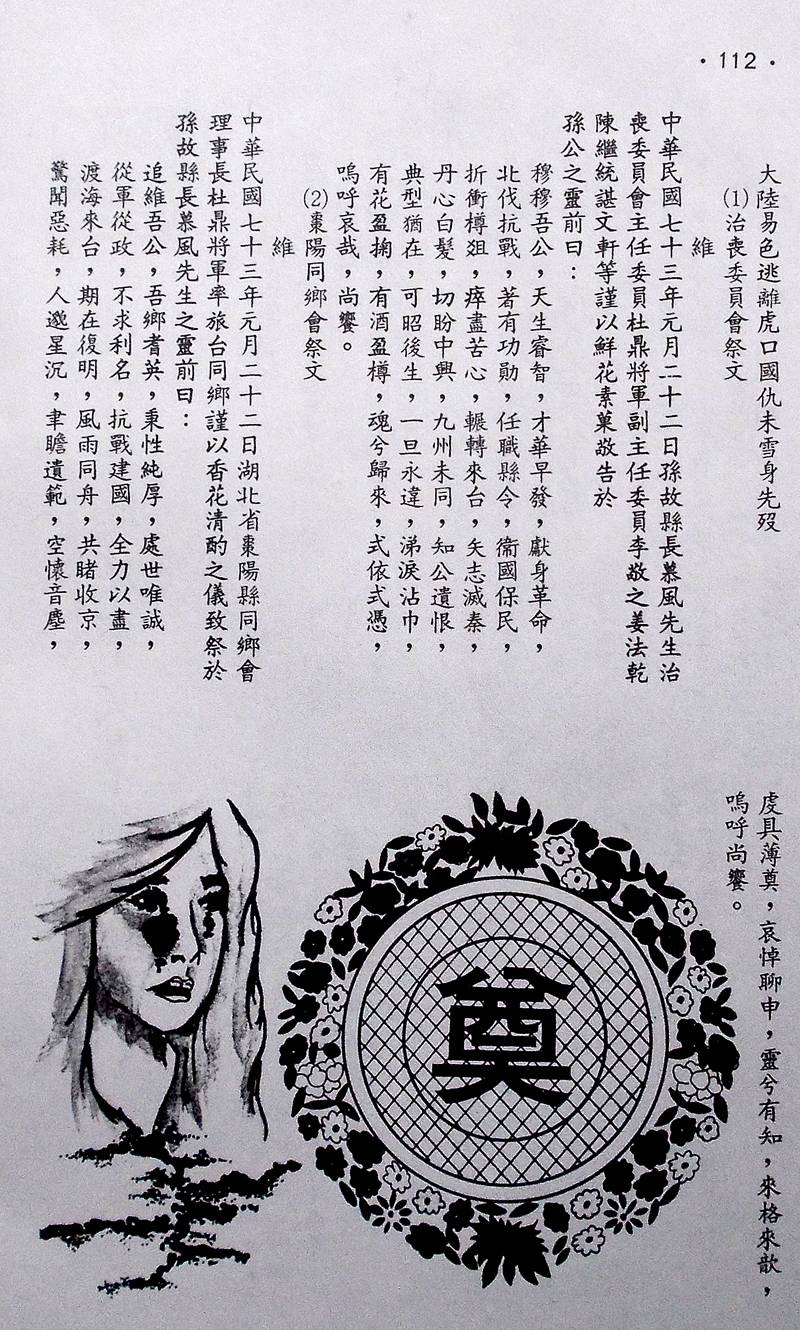 ·112·
大陸易色逃離虎口國仇未雪身先歿
⑴治喪委員會祭文
維
中華民國七十三年元月二十二日孫故縣長慕風先生治
喪委員會主任委員杜鼎將軍副主任委員李敬之姜法乾
陳繼統諶文軒等謹以鮮花素菓敬告於
孫公之靈前曰：
穆穆吾公，天生睿智，才華早發，獻身革命，
北伐抗戰，著有功勛，任職縣令，衞國保民，
折衝樽俎，瘁盡苦心，輾轉來台，矢志滅秦，
丹心白髮，切盼中興，九州未同，知公遺恨，
典型猶在，可昭後生，一旦永違，涕淚沾巾，
有花盈掬，有酒盈樽，魂兮歸來，式依式憑，
嗚呼哀哉，尚饗。
⑵棗陽同鄉會祭文
維
中華民國七十三年元月二十二日湖北省棗陽縣同鄉會
理事長杜鼎將軍率旅台同鄉謹以香花清酌之儀致祭於
孫故縣長慕風先生之靈前曰：
追維吾公，吾鄉耆英，秉性純厚，處世唯誠，
從軍從政，不求利名，抗戰建國，全力以盡，
渡海來台，期在復明，風雨同舟，共睹收京，
驚聞惡耗，人邈星沉，聿瞻遺範，空懷音塵，
虔具薄奠，哀悼聊申，靈兮有知，來格來歆，
嗚呼尚饗。
奠